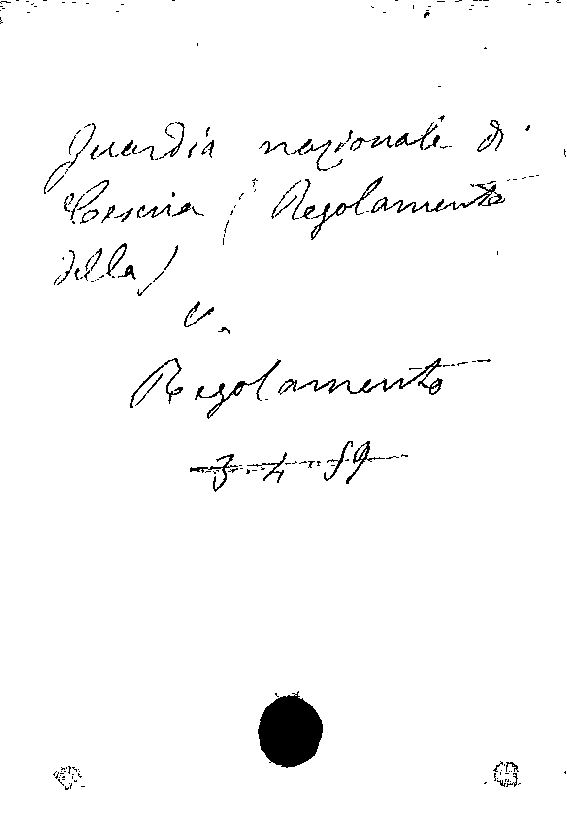 Guardia nazionale di
Cesena (Regolamento
della)
v.
Regolamento
3. 4. 59